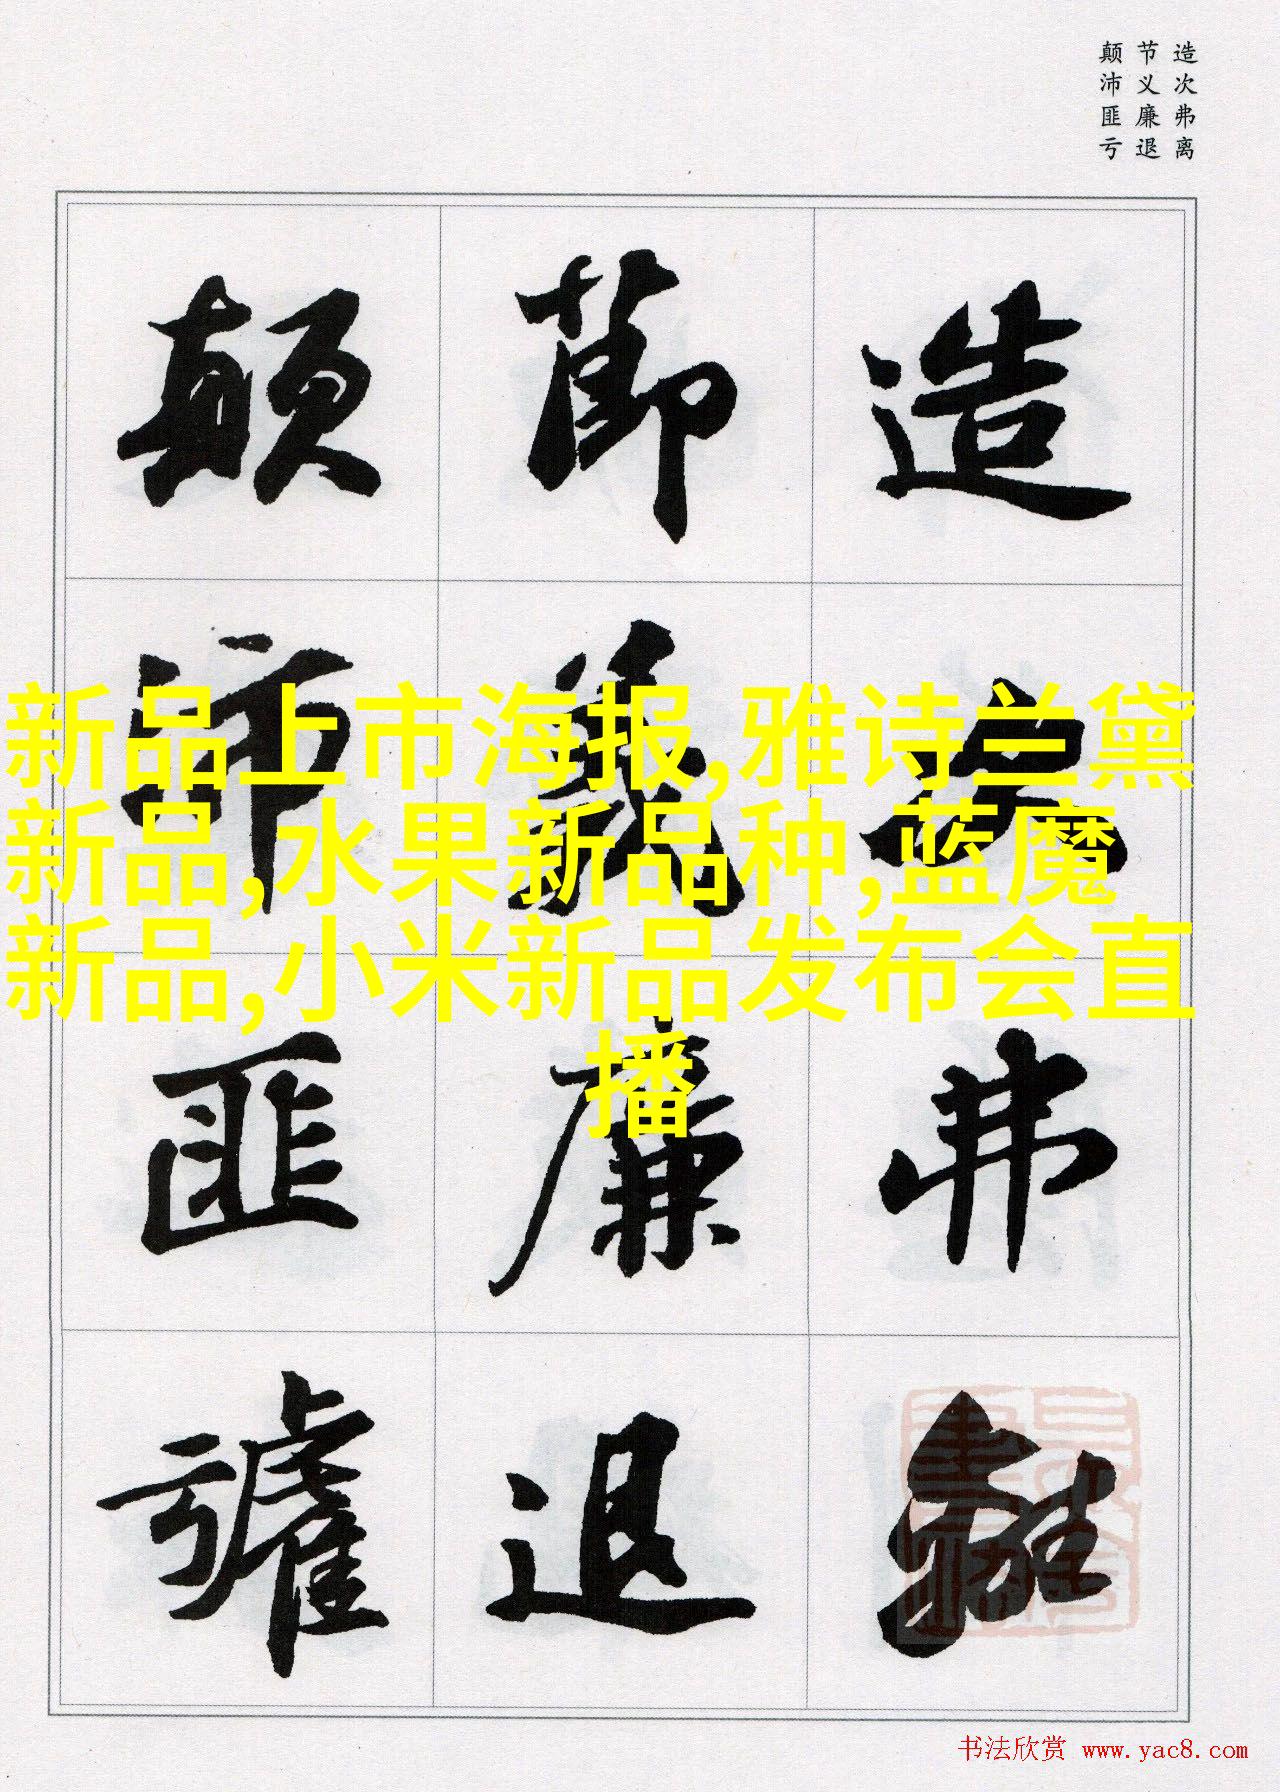 造次弗离
节义廉退
颠沛匪亏
造次弗離
節義廉退
顛沛匪虧
新品上市海报,雅诗兰黛
新品,水果新品种,蓝魔
新品,小米新品发布会直
播
书法欣赏 www.yac8.com